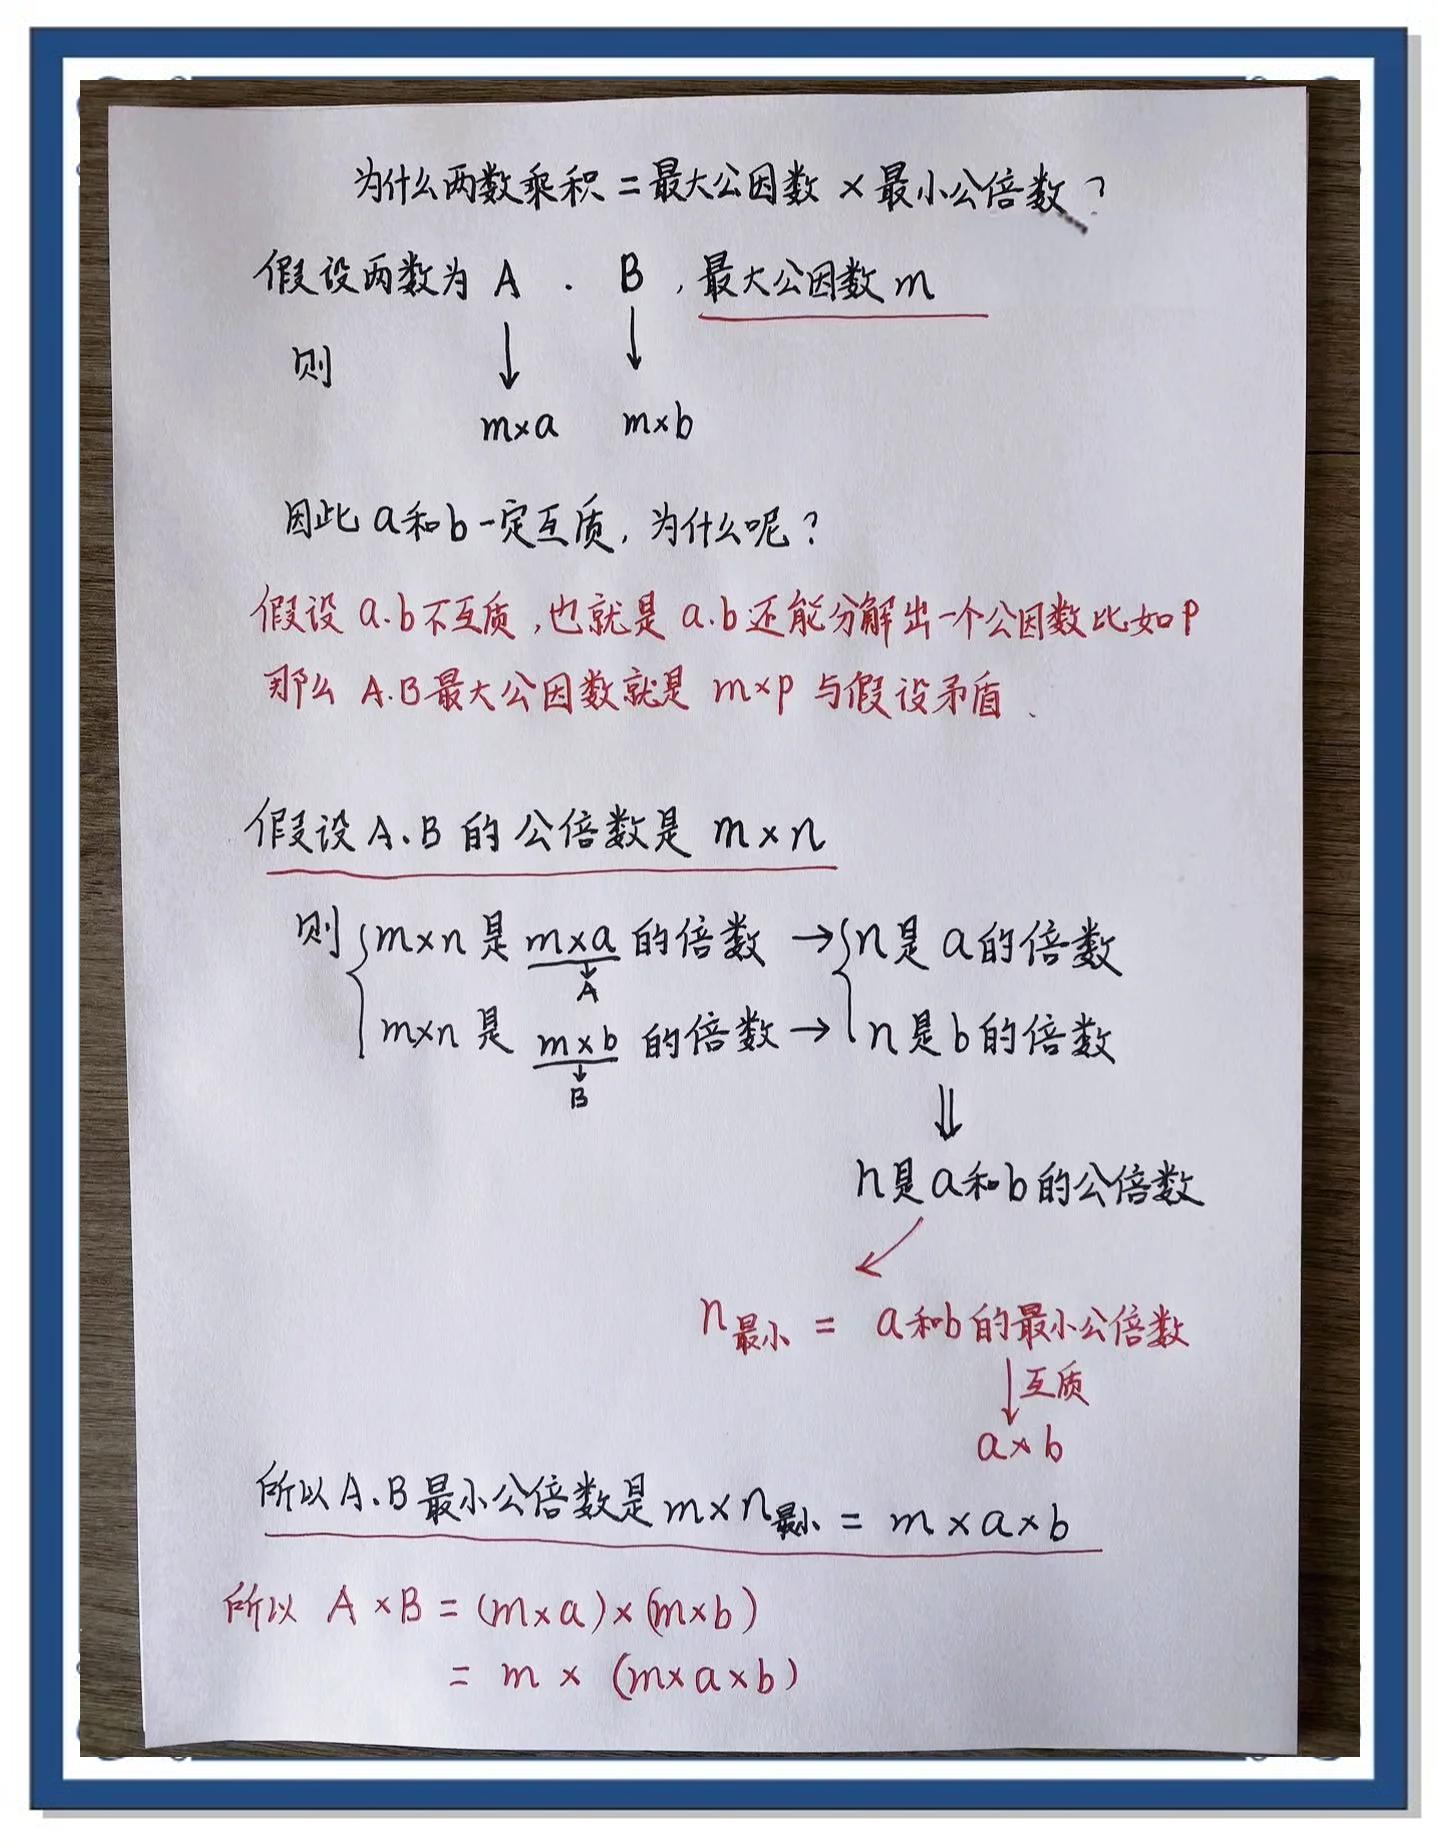 为什么两数乘积=最大公因数×最小公倍数?
假设两数为 A . B ,最大公因数m
则
m×a m×b
因此a和b一定互质,为什么呢?
假设a.b不互质,也就是a.b还能分解出一个公因数比如p
那么A.B最大公因数就是m×p与假设矛盾.
假设A.B的公倍数是m×n
则{m×n是m×a的倍数→{n是a的倍数
A
m×n是m×b的倍数→n是b的倍数
B
⇓
n是a和b的公倍数
n最小 = a和b的最小公倍数
↓互质
a×b
所以A.B最小公倍数是m×n最小=m×a×b
所以 A×B=(m×a)×(m×b)
= m × (m×a×b)